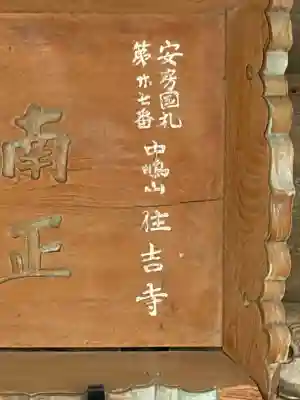 安房國札
第廿七番
中嶋山 住吉寺
南
正